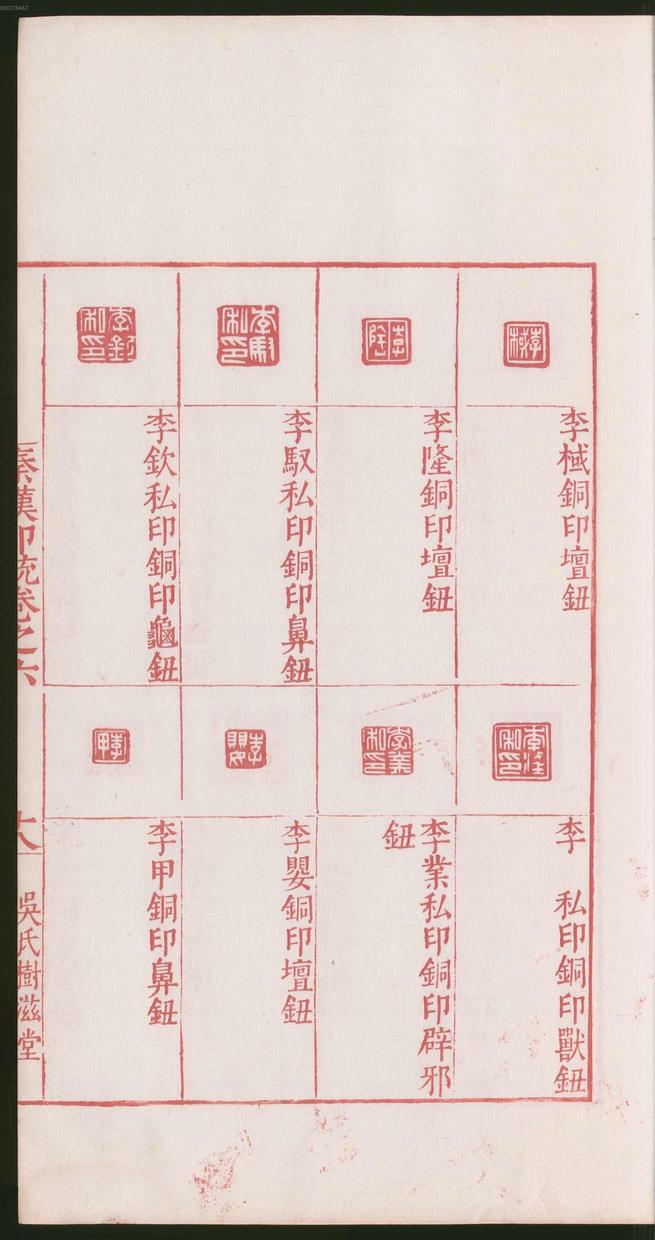 00073467
李棫銅印壇鈕
李隆銅印壇鈕
李馭私印銅印鼻鈕
李欽私印銅印龜鈕
李　私印銅印獸鈕
李業私印銅印辟邪
鈕
李嬰銅印壇鈕
李甲銅印鼻鈕
秦漢印統卷之六
吳氏樹滋堂